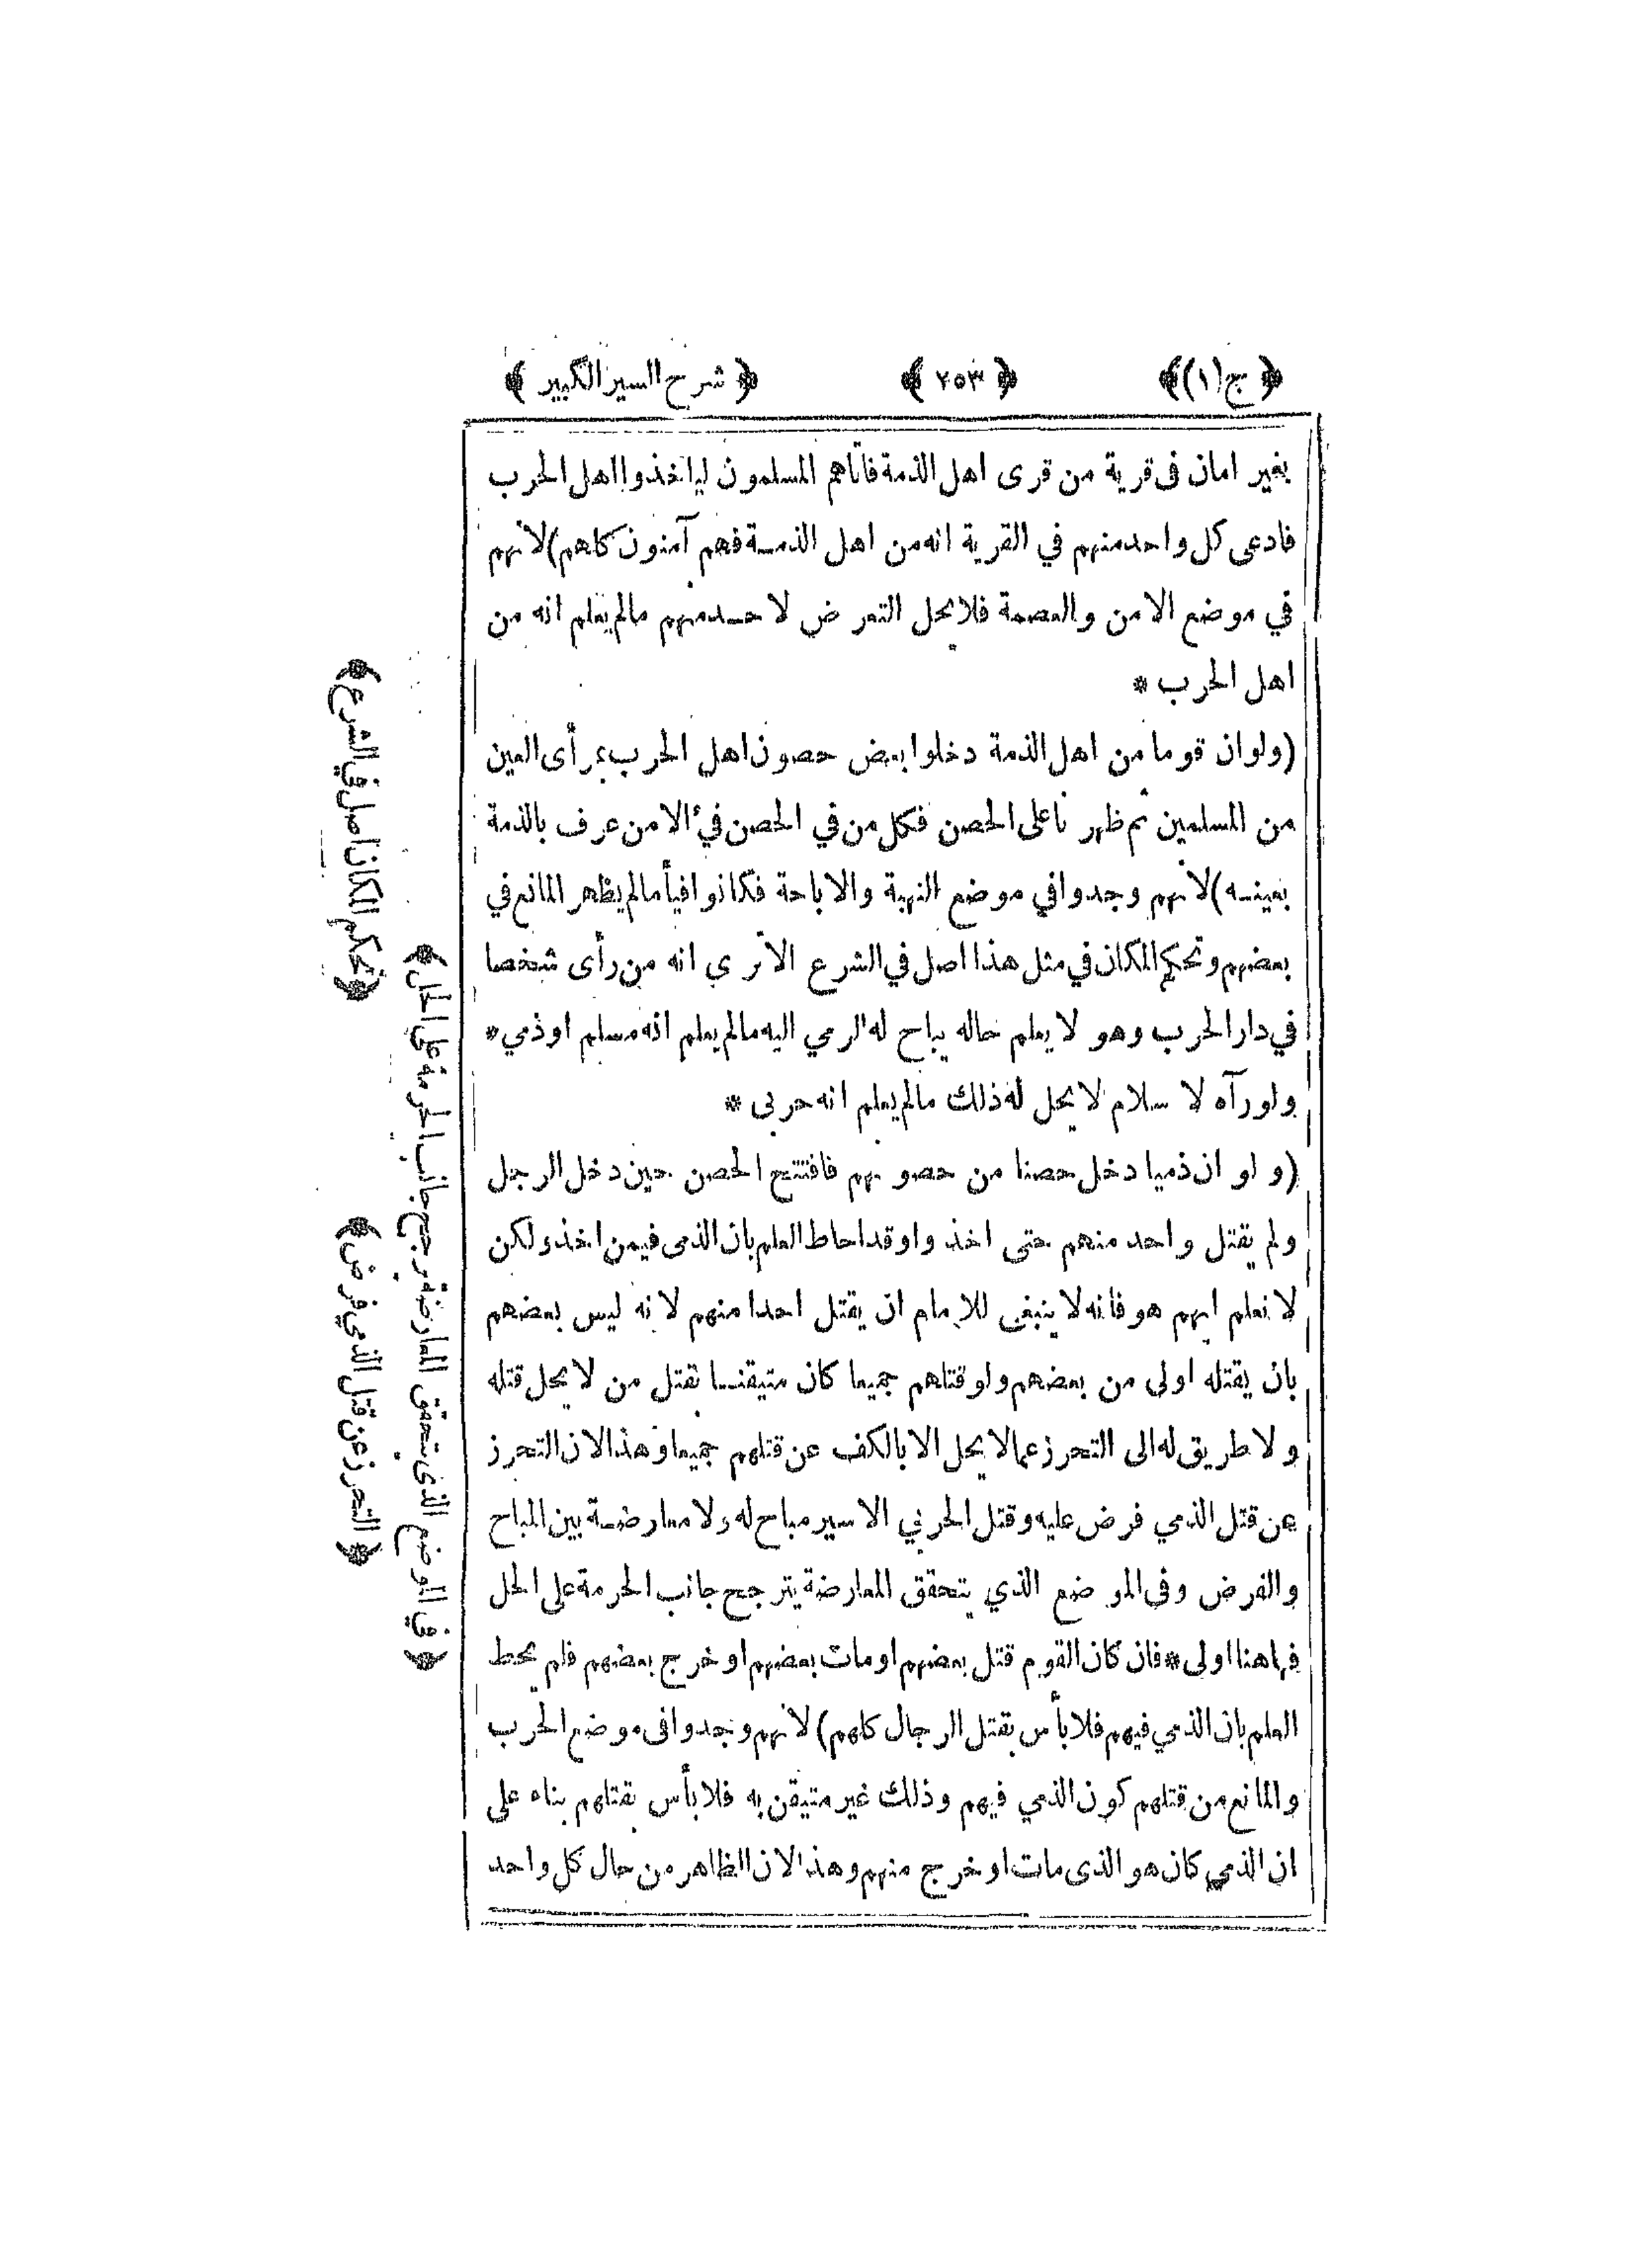 ﴿ ج (١) ﴾ ﴿ ٢٥٣ ﴾ ﴿ شرح السير الكبير ﴾
بغير امان فى قرية من قرى اهل الذمة فاتاهم المسلمون ليأخذوا اهل الحرب
فادعى كل واحد منهم في القرية انه من اهل الذمة فهم آمنون كلهم) لانهم
في موضع الامن والعصمة فلا يحل التعرض لاحد منهم مالم يعلم انه من
اهل الحرب *
(ولو ان قوما من اهل الذمة دخلوا بعض حصون اهل الحرب بمرأى العين
من المسلمين ثم ظهرنا على الحصن فكل من في الحصن فيء الا من عرف بالذمة
بعينه) لانهم وجدوا في موضع النهبة والاباحة فكانوا فيأ مالم يظهر المانع في
بعضهم وتحكيم المكان في مثل هذا اصل في الشرع الا ترى انه من رأى شخصا
في دار الحرب وهو لا يعلم حاله يباح له الرمي اليه مالم يعلم انه مسلم او ذمي *
ولو رآه لا سلام لا يحل له ذلك مالم يعلم انه حربى *
(و لو ان ذميا دخل حصنا من حصونهم فافتتح الحصن حين دخل الرجل
ولم يقتل واحد منهم حتى اخذوا وقد احاط العلم بان الذمى فيمن اخذ ولكن
لا نعلم ايهم هو فانه لا ينبغى للامام ان يقتل احدا منهم لانه ليس بعضهم
بان يقتله اولى من بعضهم ولو قتلهم جميعا كان متيقنا بقتل من لا يحل قتله
و لا طريق له الى التحرز عما لا يحل الا بالكف عن قتلهم جميعا وهذا لان التحرز
عن قتل الذمي فرض عليه وقتل الحربي الاسير مباح له ولا معارضة بين المباح
والفرض وفى الموضع الذي يتحقق المعارضة يترجح جانب الحرمة على الحل
فهاهنا اولى * فان كان القوم قتل بعضهم او مات بعضهم او خرج بعضهم فلم يحط
العلم بان الذمي فيهم فلا بأس بقتل الرجال كلهم) لانهم وجدوا فى موضع الحرب
والمانع من قتلهم كون الذمي فيهم وذلك غير متيقن به فلا بأس بقتلهم بناء على
ان الذمي كان هو الذى مات او خرج منهم وهذا لان الظاهر من حال كل واحد
﴿ تحكيم المكان اصل في الشرع ﴾
﴿ التحرز عن قتل الذمي فرض ﴾
﴿ في الموضع الذى يتحقق المعارضة يرجح جانب الحرمة على الحل ﴾